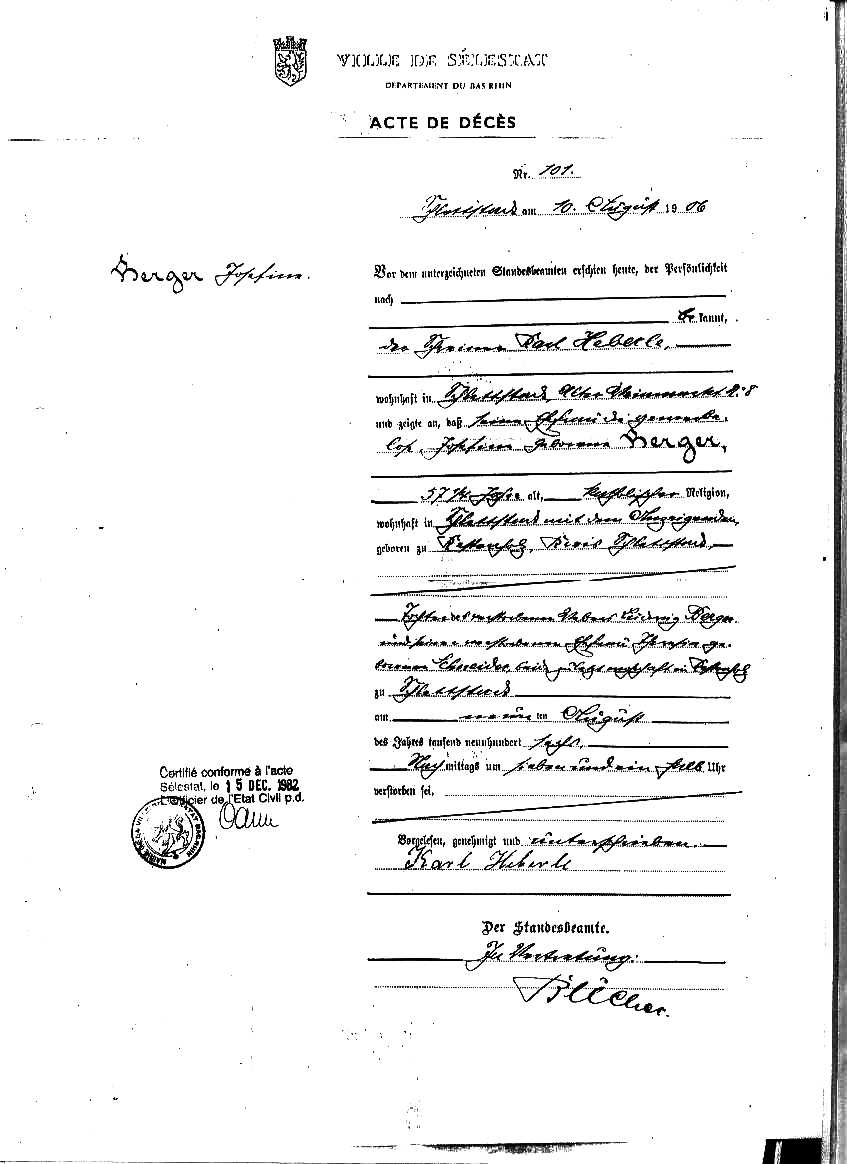 VILLE DE SÉLESTAT
DÉPARTEMENT DU BAS RHIN
ACTE DE DÉCÈS
Nr. 101.
Schlettstadt am 10. August 1906
Berger Josefine.
Vor dem unterzeichneten Standesbeamten erschien heute, der Persönlichkeit
nach
be kannt,
der Schreiner Karl Heberle,
wohnhaft in Schlettstadt, Alter Weinmarkt N. 8
und zeigte an, daß seine Ehefrau die gewerbe-
lose Josefine geborene Berger,
57 1/4 Jahre alt, katholischer Religion,
wohnhaft in Schlettstadt mit dem Anzeigenden,
geboren zu Kestenholz, Kreis Schlettstadt,
Tochter des verstorbenen Ludwig Berger
und seiner verstorbenen Ehefrau ge-
borenen Schneider, beide zuletzt wohnhaft in Kestenholz
zu Schlettstadt
am neunten August
des Jahres tausend neunhundert sechs,
Nach mittags um sieben und ein halb Uhr
verstorben sei.
Certifié conforme à l'acte
Sélestat, le 15 DEC. 1982
L'Officier de l'Etat Civil p.d.
Vorgelesen, genehmigt und unterschrieben
Karl Heberle
Der Standesbeamte.
In Vertretung:
Blücher.